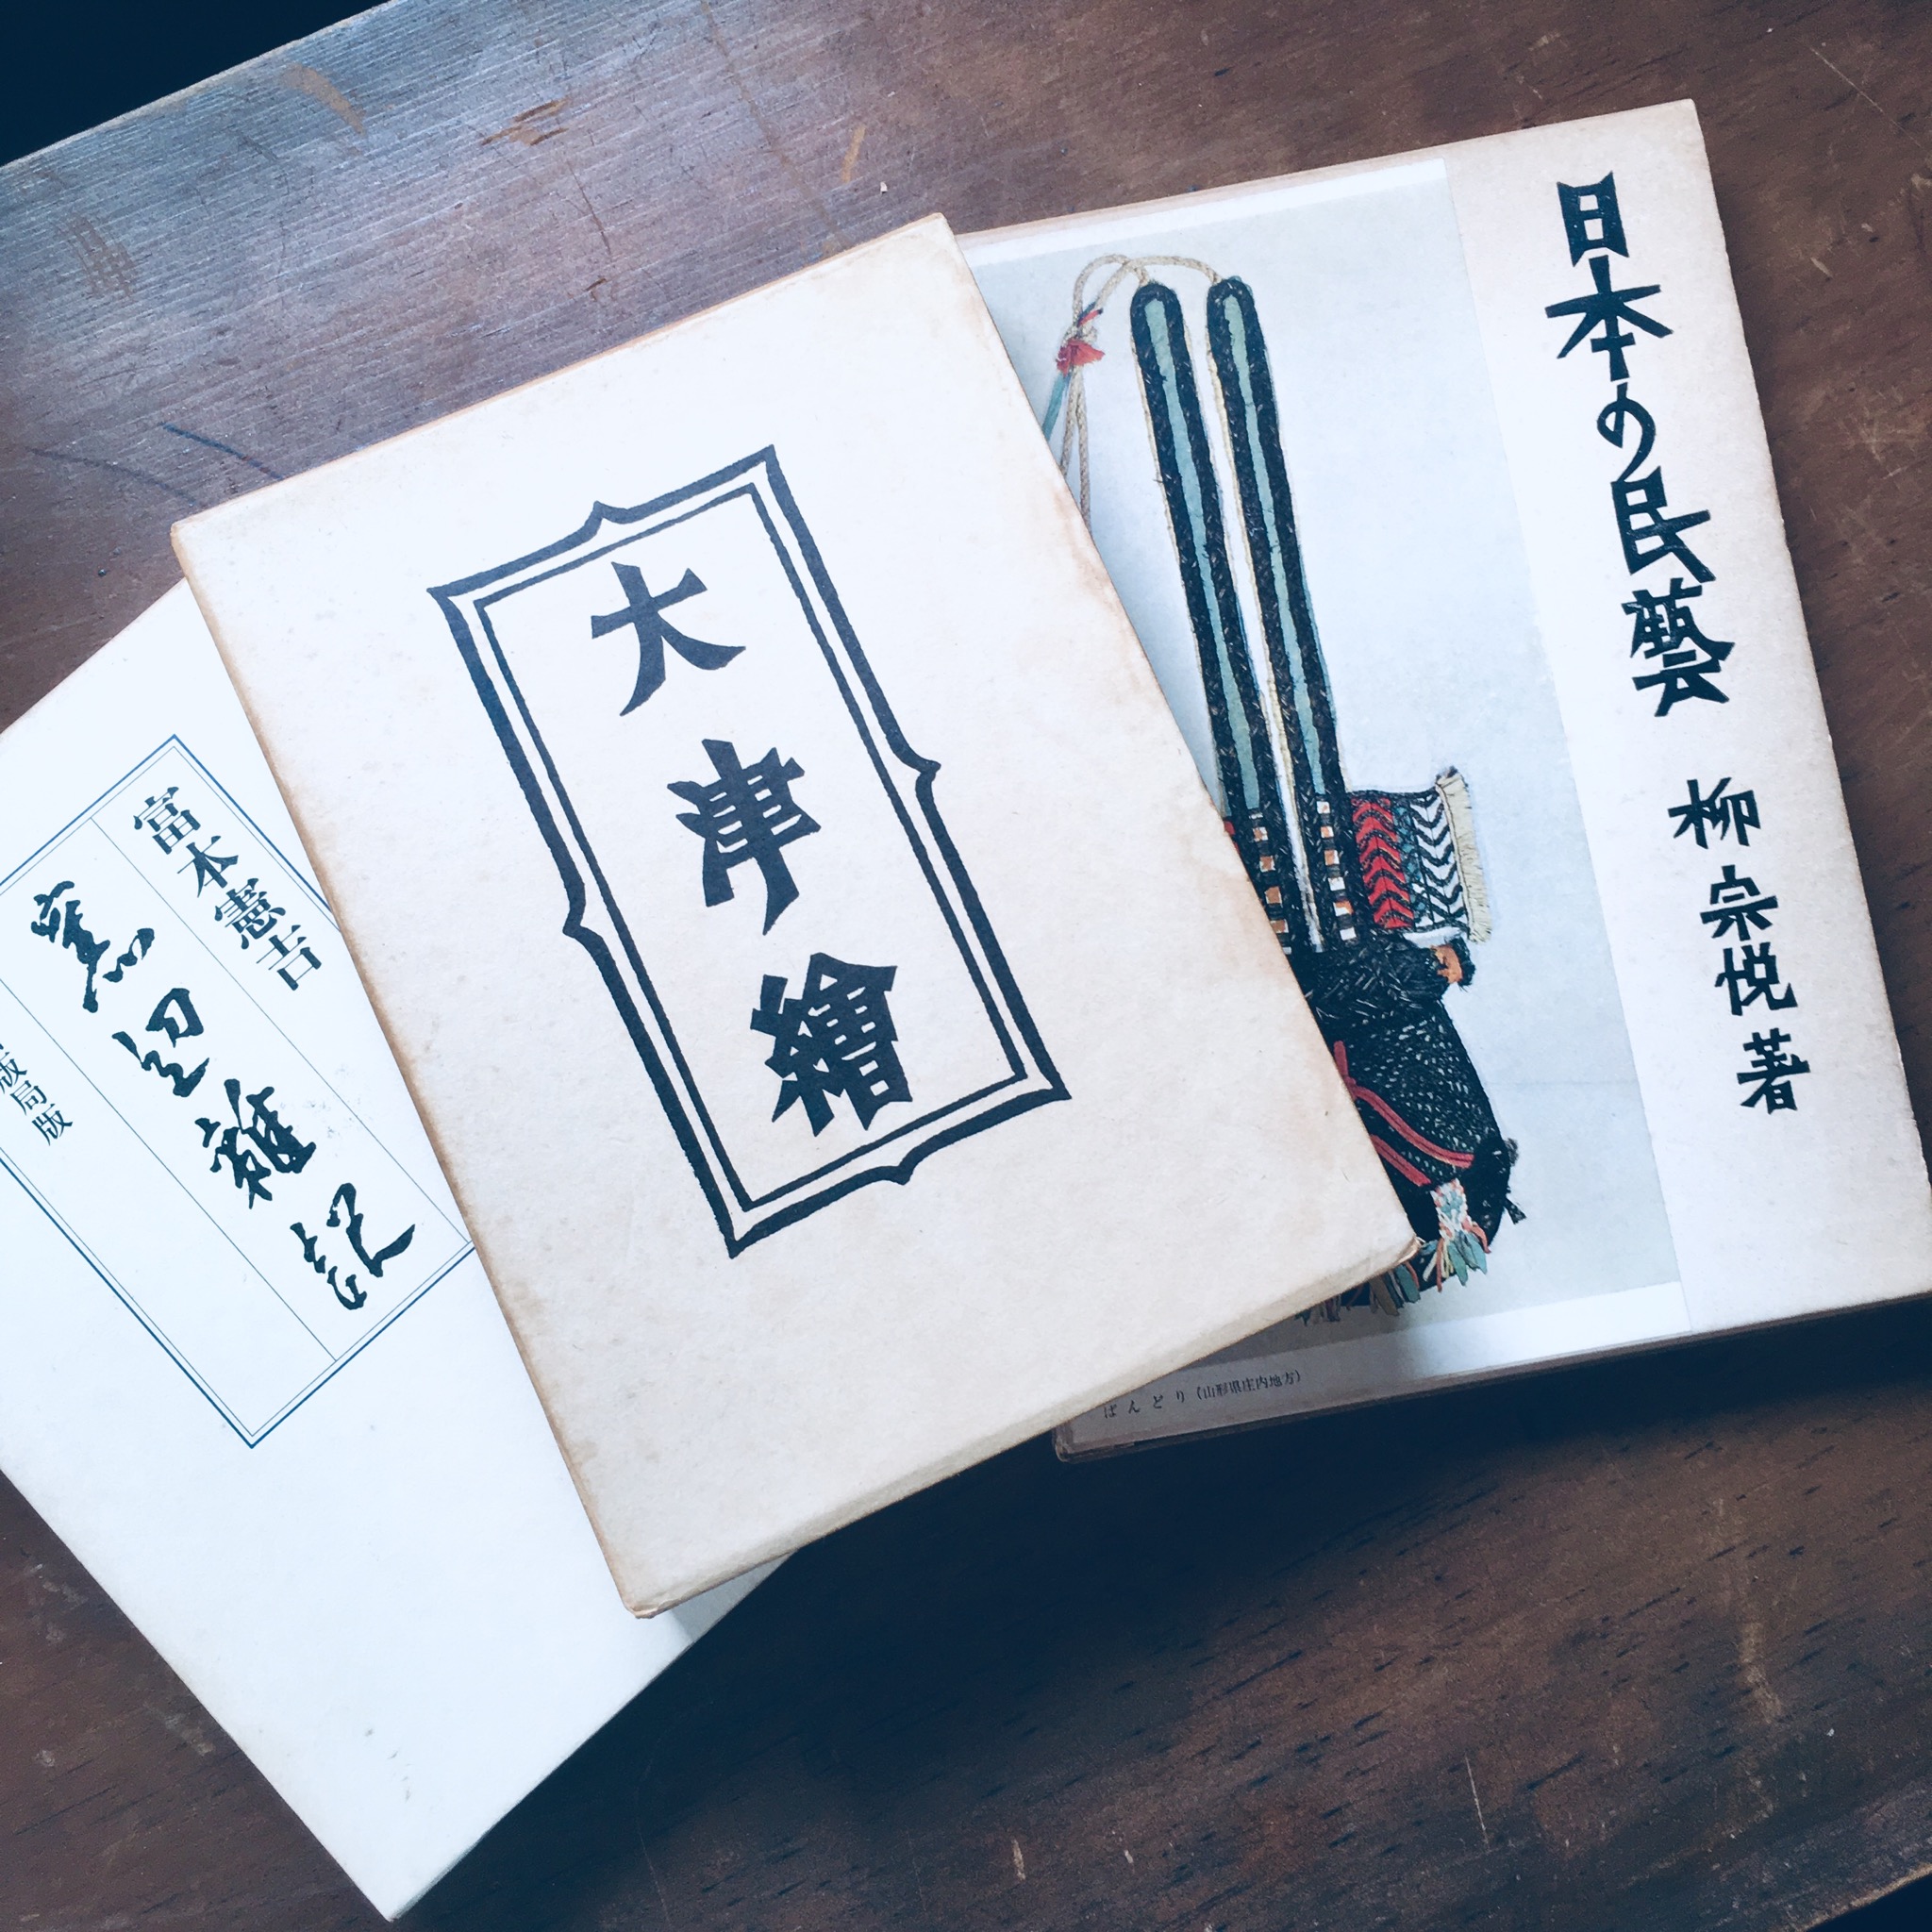 日本の民藝 柳宗悦著
ばんどり(山形県庄内地方)
大津繪
富本憲吉
窯辺雑記
版局版